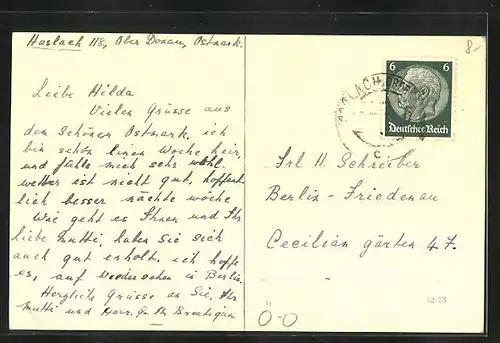 Haslach 118, Ober Donau, Ostmark.
Liebe Hilda
Vielen Grüsse aus
den Schönen Ostmark, ich
bin schön einen Woche hier,
und fühle mich sehr wohl.
wetter ist nicht gut, hoffent
lich besser nächte wöche
Wie geht es Ihnen und Ihr
Liebe Mutti, haben Sie sich
auch gut erholt. ich hoffe
es, auf wiedersehen in Berlin.
Herzliche Grüsse an Sie, Ihr
Mutti und Herr.
8-
6 6
Deutsches Reich
HASLACH
c
Frl H. Schreiber
Berlin - Friedenau
Cecilian gärten 47.
12 13
0-0